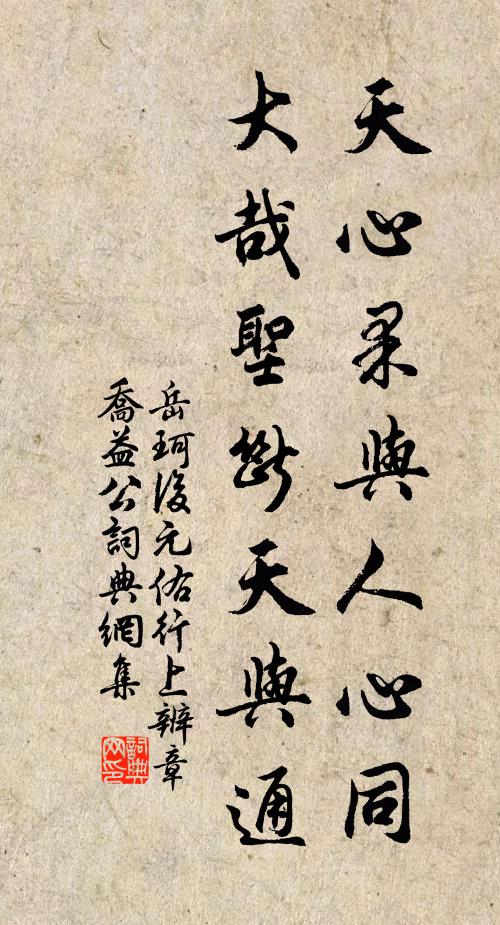 天心果與人心同
大哉聖斷天與通
岳珂復元佑行上辨章
喬益公詞典網集
詞典網印